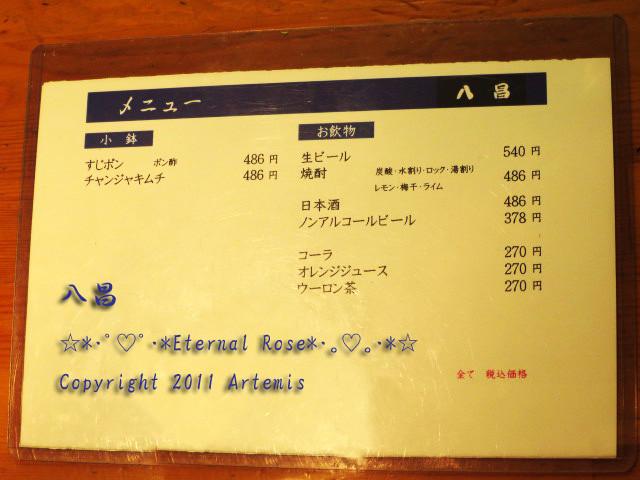 メニュー 八昌
小鉢
すじポン ポン酢 486円
チャンジャキムチ 486円
お飲物
生ビール 540円
焼酎 炭酸・水割り・ロック・湯割り 486円
レモン・梅干・ライム
日本酒 486円
ノンアルコールビール 378円
コーラ 270円
オレンジジュース 270円
ウーロン茶 270円
八昌
☆*･ﾟ♡ﾟ･*Eternal Rose*･｡♡｡･*☆
Copyright 2011 Artemis
全て 税込価格